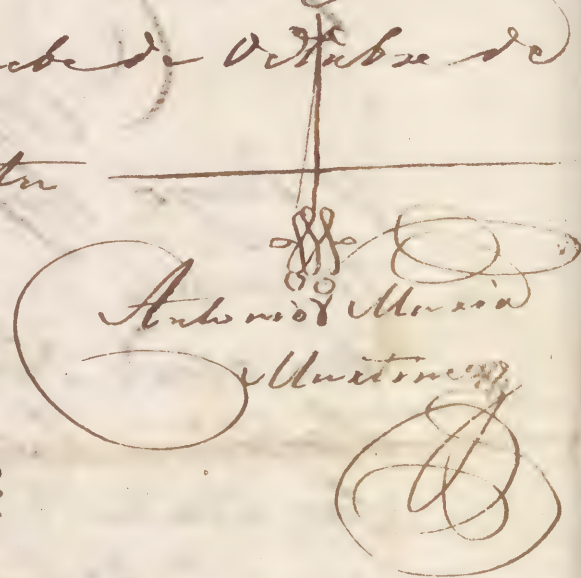 de Octubre de
Antonio Maria
Martinez